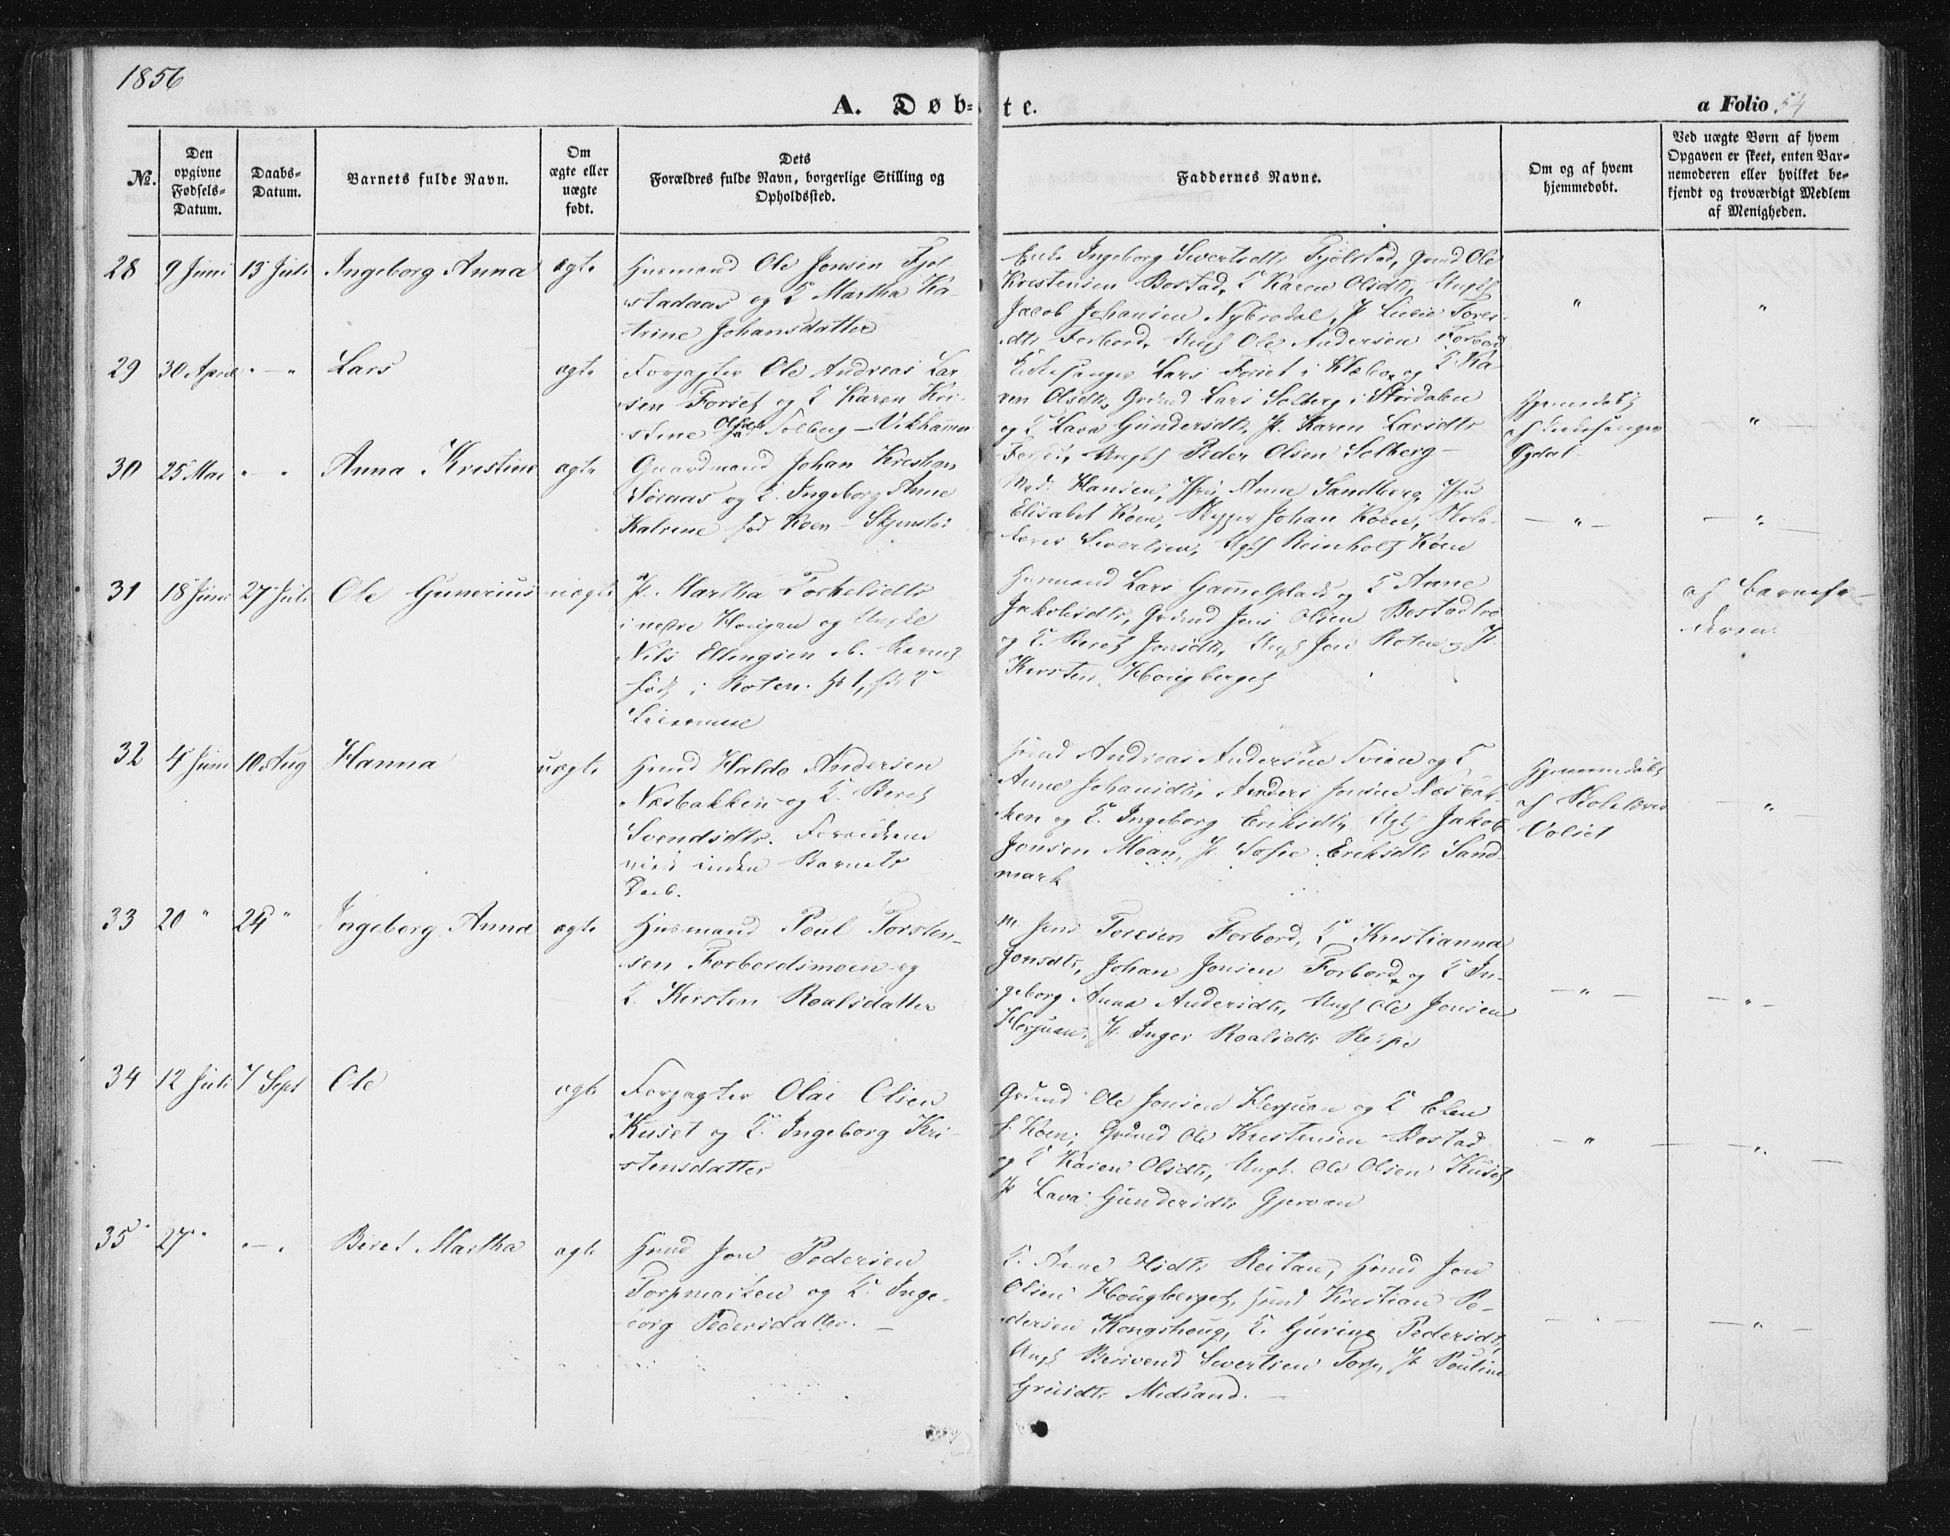 1856
A. Døb-te.
a Folio 54
No. | Den opgivne Fødsels-Datum. | Daabs-Datum. | Barnets fulde Navn. | Om ægte eller uægte født. | Dets Forældres fulde Navn, borgerlige Stilling og Opholdssted. | Faddernes Navne. | Om og af hvem hjemmedøbt. | Ved uægte Børn af hvem Opgaven er skeet, enten Barnemoderen eller hvilket bekjendt og troværdigt Medlem af Menigheden.
28 9 Juni 13 Juli Ingeborg Anna ægte
Husmand Ole Jonsen Fjol-
stadaas og K Martha Ka-
trine Johansdatter
Enke Ingeborg Sivertsdtr Fjolstad, Grmd Ole
Kristensen Bostad, K Karen Olsdtr, Ungk
Jacob Johansen Nybrodal, P. Lucie Tores-
dtr Forbord, Ungk Ole Andersen Forbord
29 30 April " — " Lars ægte
Forpagter Ole Andreas Lar-
sen Forset og K Karen Kri-
stine Olsdtr Solberg — Vikhammer
Kirkesanger Lars Forset i Klæbo og K Ka-
ren Olsdtr, Grmd Lars Solberg i Stördalen
og K Lava Gundersdtr, P. Karen Larsdtr
Forset, Ungk Peder Olsen Solberg —
Hjemmedøbt
af Kirkesanger
30 25 Mai " — " Anna Kristine ægte
Gaardmand Johan Kristian
Moraas og K. Ingeborg Anne
Katrine fød Koen —
Mad. Hansen, Jfru Anne Sandberg, Jfru
Elisabet Koen, Johan Koen, Skole-
lærer Sivertsen, Ugk Reinholt Koen
31 18 Juni 27 Juli Ole Gunerius uægte
P. Martha Torkelsdtr
i nedre Hougan og Ungkl
Nils Ellingsen ib. Barnet
født i Roten.
Husmand Lars Gammelplads og K Anne
Jakobsdtr, Grmd Jens Olsen Bostadtrø
og K. Beret Jonsdtr, Ungk Jon Roten og P.
Kirsten Hougberget
af Barnefa-
deren.
32 4 Juni 10 Aug Hanna uægte
Hmd Haldo Andersen
Næsbakken og K. Beret
Svendsdtr. Forældrene
viet inden Barnets
Daab.
Hmd Andreas Andersen Tvien og K
Anne Johansdtr, Anders Jonsen Næsbak-
ken og K. Ingeborg Eriksdtr, Ugk Jakob
Jonsen Moan, P. Sofie Eriksdtr Sand-
mark
Hjemmedøbt
af Skolelærer
Volset
33 20 " 24 " Ingeborg Anna ægte
Husmand Poul Torsten-
sen Forbordsmoen og
K. Kirsten Roalsdatter
Jens Toresen Forbord, K Kristianna
Jonsdtr, Johan Jonsen Forbord og K In-
geborg Anna Andersdtr, Ungk Ole Jonsen
Herjuan, P. Inger Roalsdtr Reppe
34 12 Juli 7 Sept Ole ægte
Forpagter Olai Olsen
Kuset og K. Ingeborg Kri-
stensdatter
Grmd Ole Jonsen Herjuan og K Elen
f. Koen, Grmd Ole Kristensen Bostad
og K Karen Olsdtr, Ungk. Ole Olsen Kuset
P Lava Gundersdtr Gjervan
35 27 " " — " Beret Martha ægte
Hmd Jon Pedersen
Torpmarken og K. Inge-
borg Pedersdatter. —
K. Anne Olsdtr Reitan, Hmd Jon
Olsen Hougberget, Hmd Kristian Pe-
dersen Kongshoug, K. Gurine Pedersdtr,
Ungk Berivend Sivertsen Torp, P. Pouline
Greisdtr Midsand. —